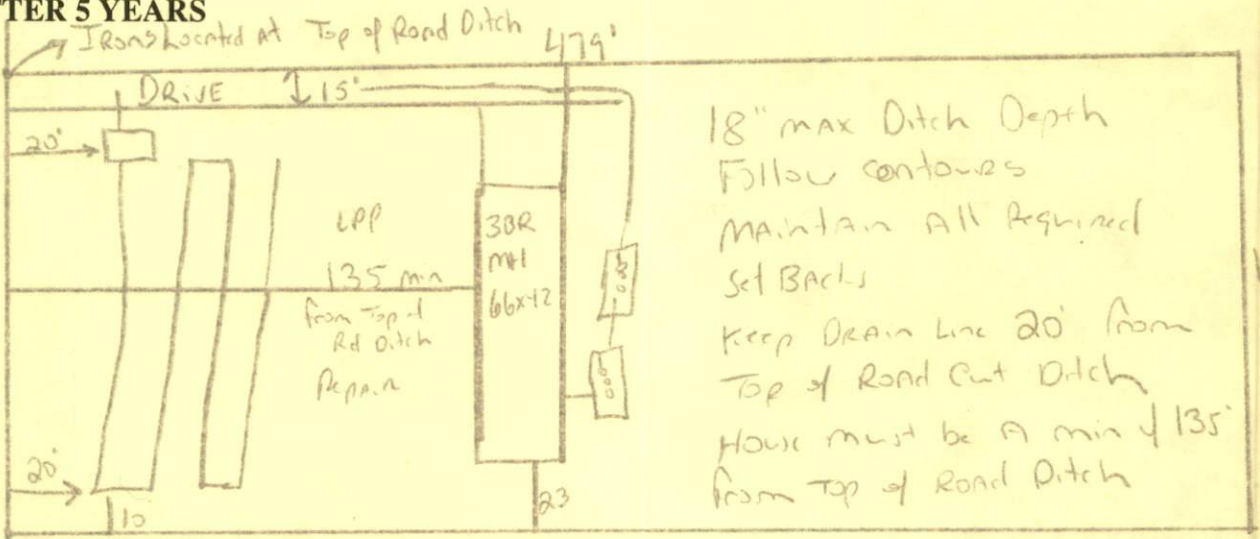 TER 5 YEARS
Irons Located At Top of Road Ditch
479'
DRIVE
15'
20'
LPP
135 min
from Top of
Rd Ditch
Repair
3BR
MH
66x42
20'
10
23
18" MAX Ditch Depth
Follow contours
MAintAin All Required
Set BAcks
Keep DRAin Line 20' from
Top of Road Cut Ditch
House must be A min of 135'
from Top of Road Ditch